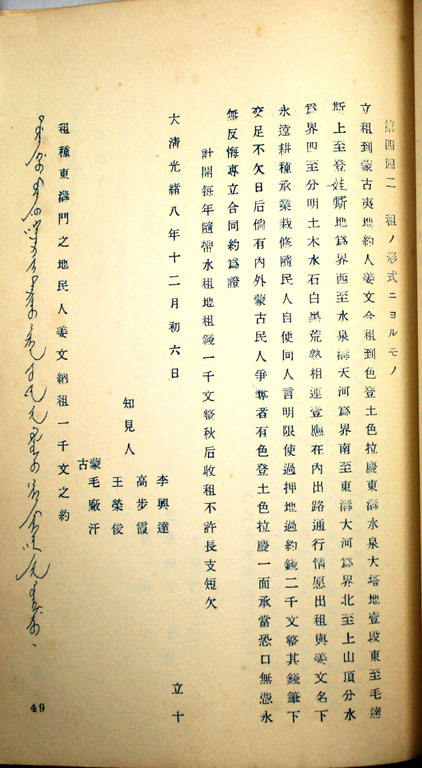 第四四二 租ノ形式ニヨルモノ
立租到蒙古夷地約人姜文今租到色登土色拉慶東溝水泉大塔地壹段東至毛達
斯上至登娃嘶地爲界西至水泉溝天河爲界南至東溝大河爲界北至上山頂分水
爲界四至分明土木水石白黑荒熟相連壹應在內出路通行情愿出租與姜文名下
永遠耕種承業栽修隨民人自使同人言明限使過押地過約錢二千文整其錢筆下
交足不欠日后倘有內外蒙古民人爭奪者有色登土色拉慶一面承當恐口無憑永
無反悔專立合同約爲證
計開每年隨帶水租地租錢一千文整秋后收租不許長支短欠
大淸光緒八年十二月初六日 立十
知見人
李興達
高步霞
王榮俊
蒙古 毛廠汗
租種東溝門之地民人姜文納租一千文之約
49